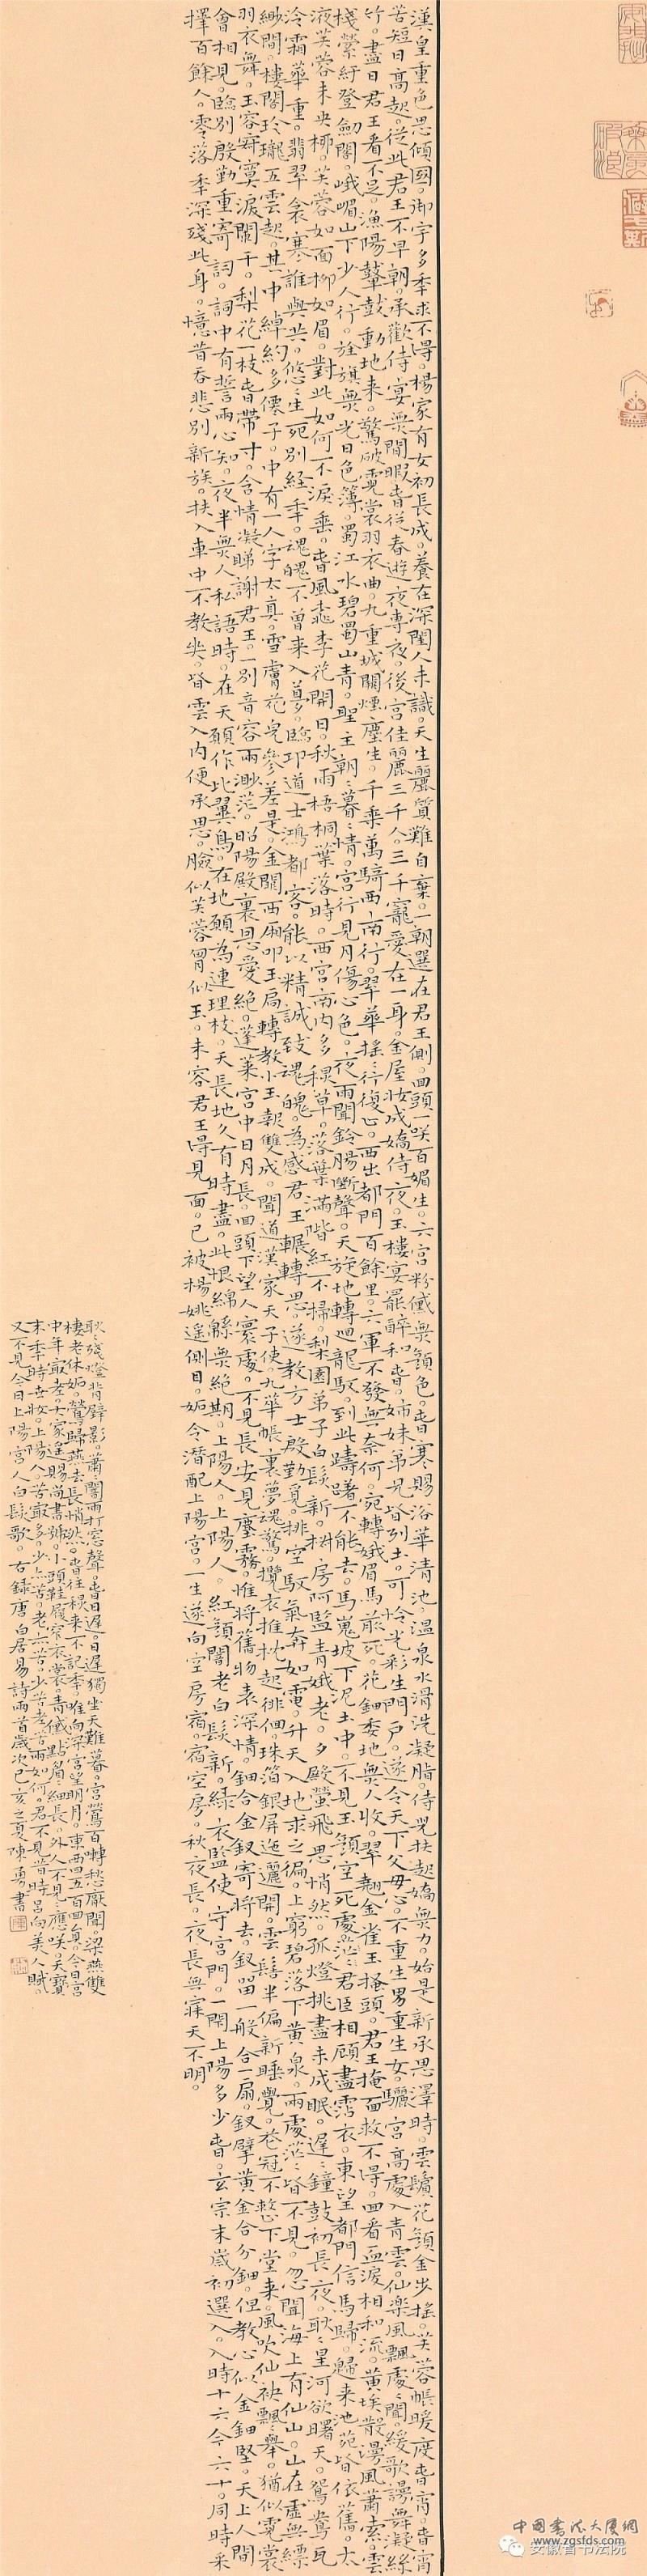 漢皇重色思傾國。御宇多年求不得。楊家有女初長成。養在深閨人未識。天生麗質難自棄。一朝選在君王側。回頭一笑百媚生。六宮粉黛無顏色。春寒賜浴華清池。溫泉水滑洗凝脂。侍兒扶起嬌無力。始是新承恩澤時。雲鬢花顏金步搖。芙蓉帳暖度春宵。春宵
苦短日高起。從此君王不早朝。承歡侍宴無閒暇。春從春遊夜專夜。後宮佳麗三千人。三千寵愛在一身。金屋妝成嬌侍夜。玉樓宴罷醉和春。姊妹弟兄皆列土。可憐光彩生門戶。遂令天下父母心。不重生男重生女。驪宮高處入青雲。仙樂風飄處處聞。緩歌謾舞凝絲
竹。盡日君王看不足。漁陽鼙鼓動地來。驚破霓裳羽衣曲。九重城闕煙塵生。千乘萬騎西南行。翠華搖搖行復止。西出都門百餘里。六軍不發無奈何。宛轉娥眉馬前死。花鈿委地無人收。翠翹金雀玉搔頭。君王掩面救不得。回看血淚相和流。黃埃散漫風蕭索。雲
棧縈紆登劍閣。峨嵋山下少人行。旌旗無光日色薄。蜀江水碧蜀山青。聖主朝朝暮暮情。宮行見月傷心色。夜雨聞鈴腸斷聲。天旋地轉迴龍馭。到此躊躇不能去。馬嵬坡下泥土中。不見玉顏空死處。君臣相顧盡霑衣。東望都門信馬歸。歸來池苑皆依舊。太
液芙蓉未央柳。芙蓉如面柳如眉。對此如何不淚垂。春風桃李花開日。秋雨梧桐葉落時。西宮南內多秋草。落葉滿階紅不掃。梨園弟子白髮新。椒房阿監青娥老。夕殿螢飛思悄然。孤燈挑盡未成眠。遲遲鐘鼓初長夜。耿耿星河欲曙天。鴛鴦瓦
冷霜華重。翡翠衾寒誰與共。悠悠生死別經年。魂魄不曾來入夢。臨邛道士鴻都客。能以精誠致魂魄。為感君王輾轉思。遂教方士殷勤覓。排空馭氣奔如電。升天入地求之徧。上窮碧落下黃泉。兩處茫茫皆不見。忽聞海上有仙山。山在虛無縹
緲間。樓閣玲瓏五雲起。其中綽約多僊子。中有一人字太真。雪膚花皃參差是。金闕西廂叩玉扃。轉教小玉報雙成。聞道漢家天子使。九華帳裏夢魂驚。攬衣推枕起徘徊。珠箔銀屏迤邐開。雲鬢半偏新睡覺。花冠不整下堂來。風吹仙袂飄飄舉。猶似霓裳
羽衣舞。玉容寂寞淚闌干。梨花一枝春帶雨。含情凝睇謝君王。一別音容兩渺茫。昭陽殿裏恩愛絕。蓬萊宮中日月長。回頭下望人寰處。不見長安見塵霧。惟將舊物表深情。鈿合金釵寄將去。釵留一股合一扇。釵擘黃金合分鈿。但教心似金鈿堅。天上人間
會相見。臨別殷勤重寄詞。詞中有誓兩心知。夜半無人私語時。在天願作比翼鳥。在地願為連理枝。天長地久有時盡。此恨綿綿無絕期。上陽人。上陽人。紅顏闇老白髮新。綠衣監使守宮門。一閉上陽多少春。玄宗末歲初選入。入時十六今六十。同時采
擇百餘人。零落年深殘此身。憶昔吞悲別親族。扶入車中不教哭。皆雲入內便承恩。臉似芙蓉胸似玉。未容君王得見面。已被楊妃遙側目。妒令潛配上陽宮。一生遂向空房宿。宿空房。秋夜長。夜長無寐天不明。
耿耿殘燈背壁影。蕭蕭闇雨打窗聲。春日遲。日遲獨坐天難暮。宮鶯百囀愁厭聞。梁燕雙
棲老休妒。鶯歸燕去長悄然。春往秋來不記年。唯向深宮望明月。東西四五百回圓。今日宮
中年最老。大家遙賜尚書號。小頭鞋履窄衣裳。青黛點眉眉細長。外人不見見應笑。天寶
末年時世妝。上陽人。苦最多。少亦苦。老亦苦。少苦老苦兩如何。君不見昔時呂向美人賦。
又不見今日上陽宮人白髮歌。右錄唐白居易詩兩首歲次己亥之夏陳勇書
中國書法大廈網
www.zgsfds.com
安徽省书法院